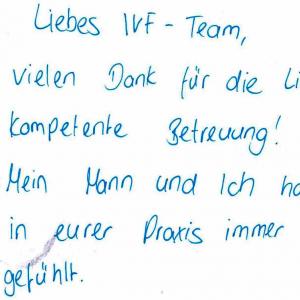 Liebes IVF-Team,
vielen Dank für die Li
kompetente Betreuung!
Mein Mann und Ich ha
in eurer Praxis immer
gefühlt.